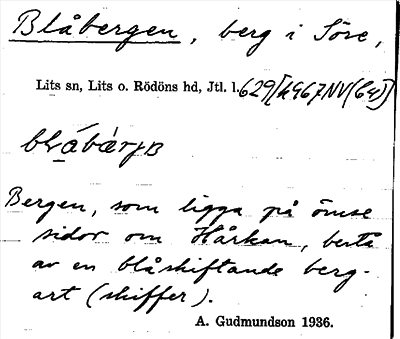 Blåbergen, berg i Söre,
Lits sn, Lits o. Rödöns hd, Jtl. l. 629
Bergen, som ligga på ömse
sidor om Hårkan, bestå
av en blåskiftande berg-
art (skiffer).
A. Gudmundson 1936.